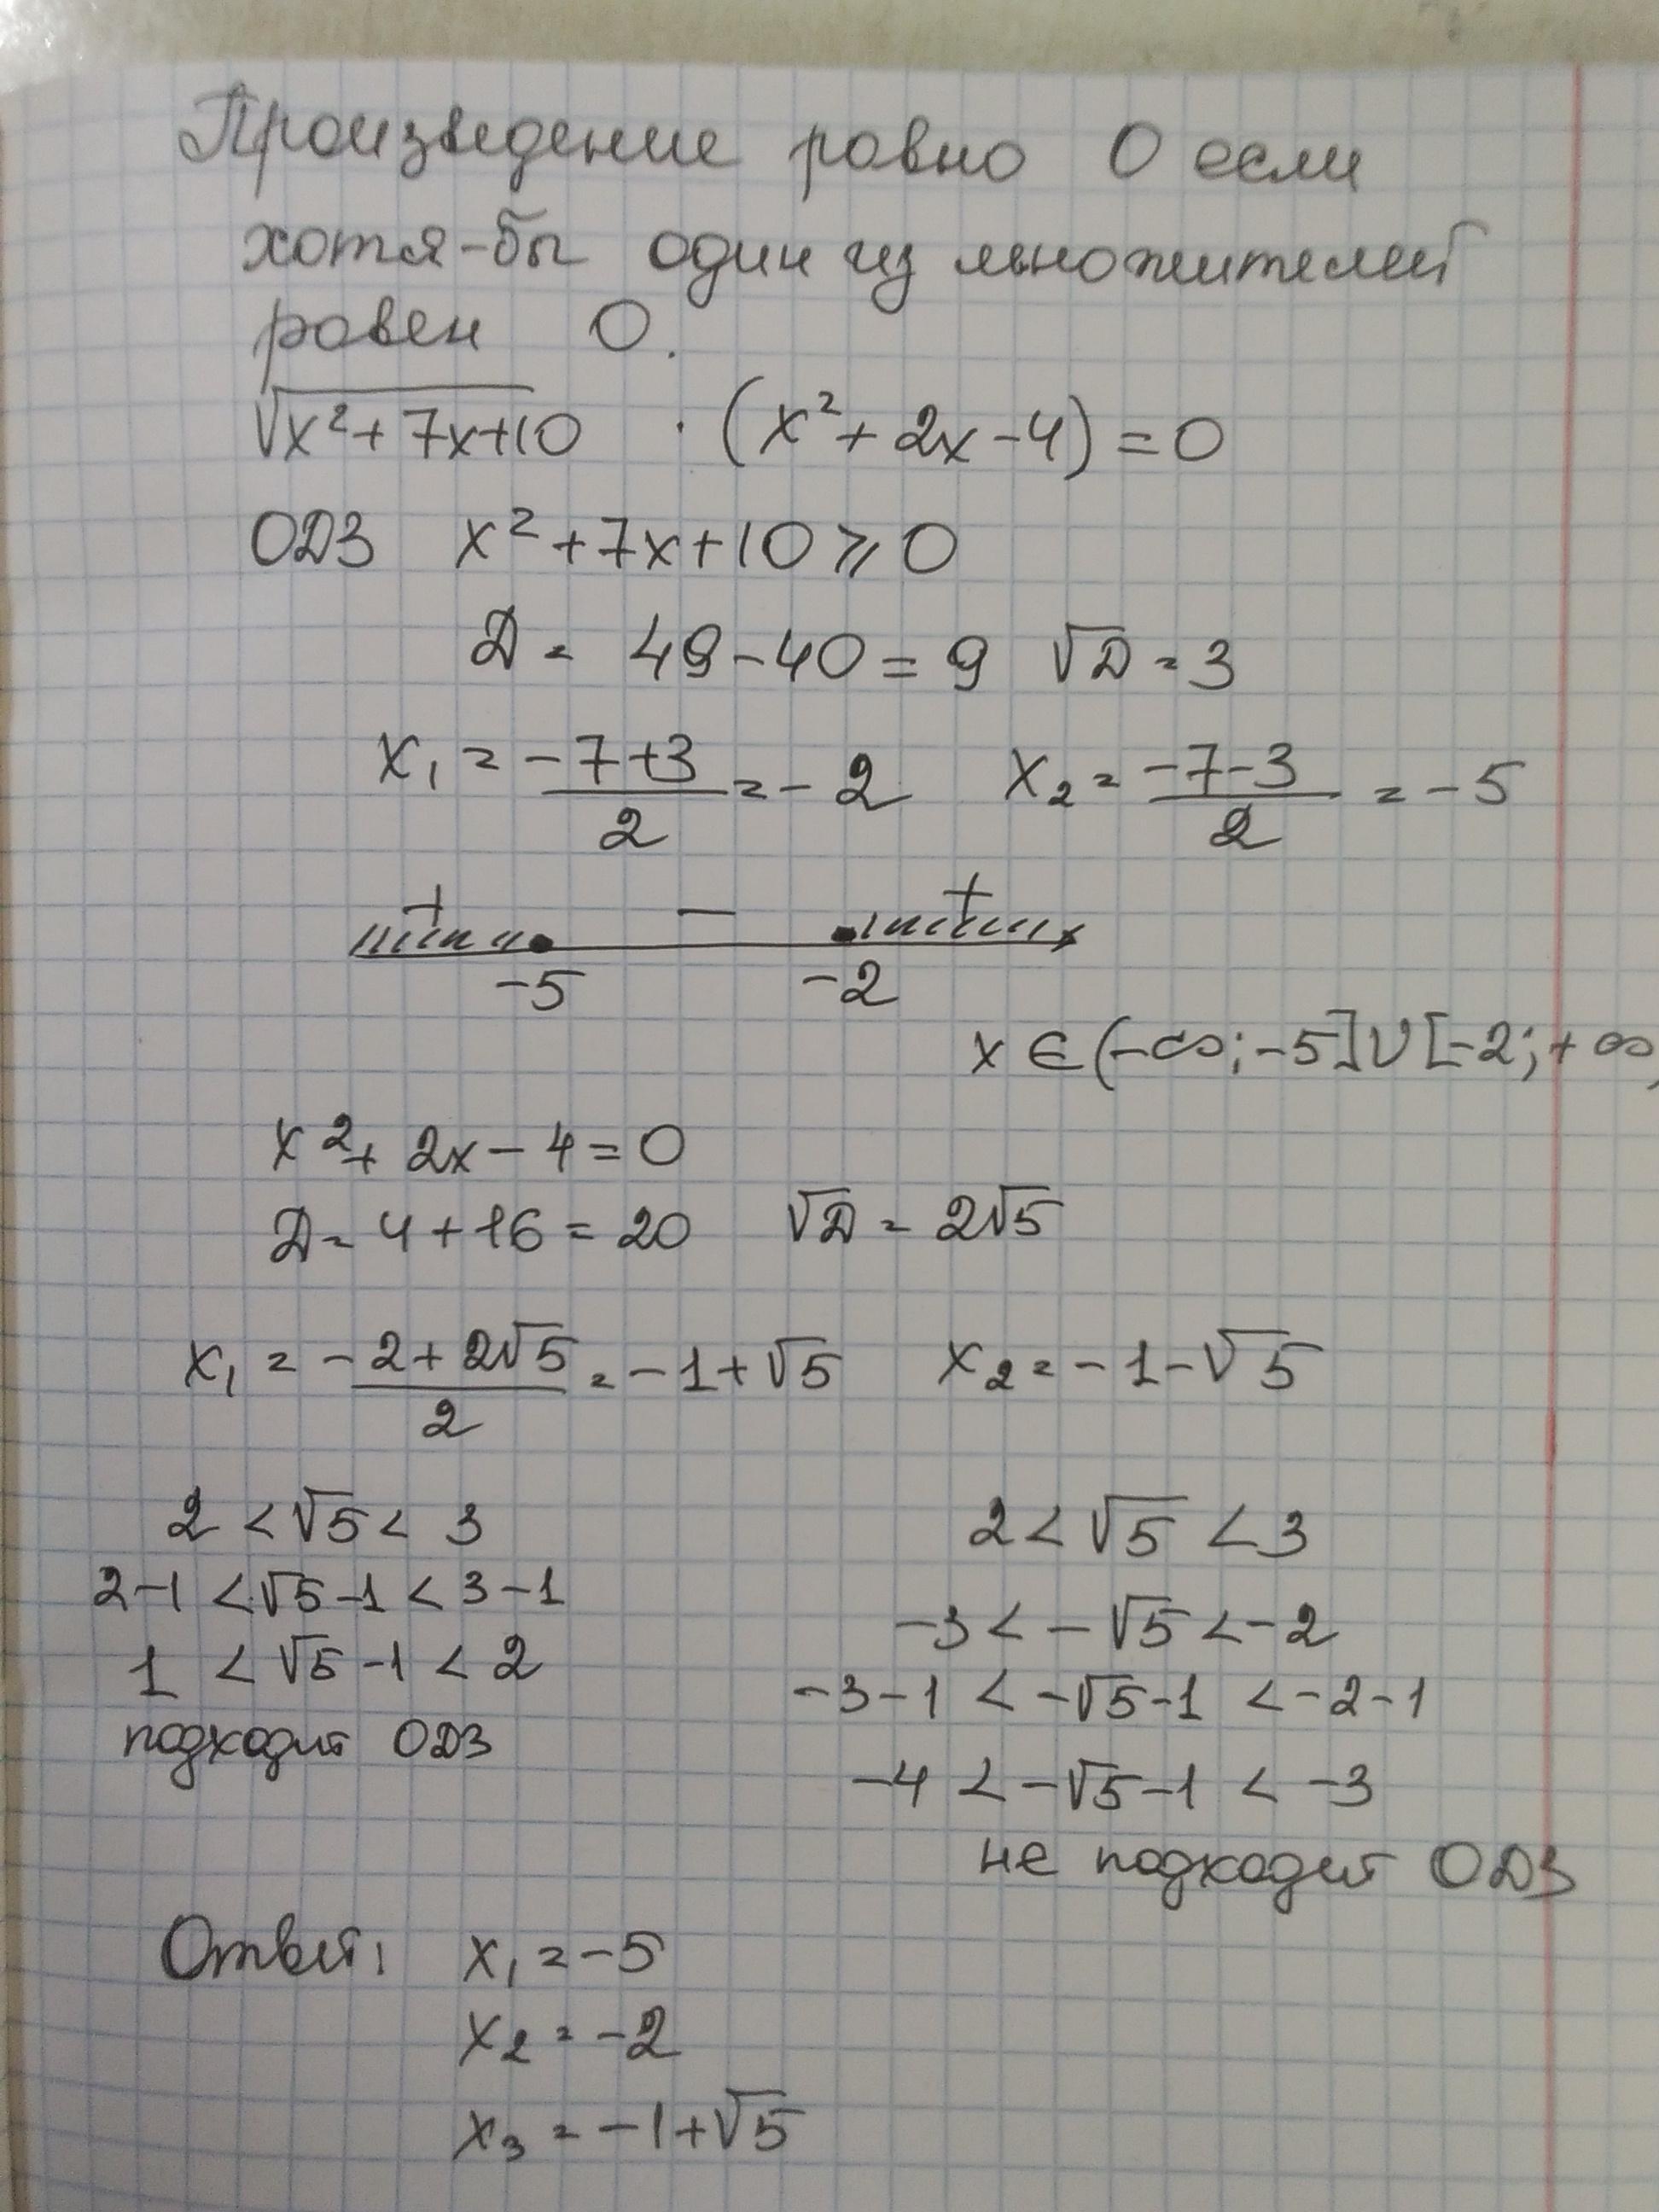 Произведение равно 0 если
хотя-бы один из множителей
равен 0.
√x²+7x+10 · (x²+2x-4)=0
ОДЗ x²+7x+10⩾0
D = 49-40=9 √D=3
x₁ = -7+3/2 = -2 x₂ = -7-3/2 = -5
+ - +
-5 -2
x ∈ (-∞; -5] ∪ [-2; +∞)
x²+2x-4=0
D=4+16=20 √D=2√5
x₁ = -2+2√5/2 = -1+√5 x₂=-1-√5
2<√5<3 2<√5<3
2-1<√5-1<3-1 -3<-√5<-2
1<√5-1<2 -3-1<-√5-1<-2-1
подходит ОДЗ -4<-√5-1<-3
не подходит ОДЗ
Ответ: x₁=-5
x₂=-2
x₃=-1+√5